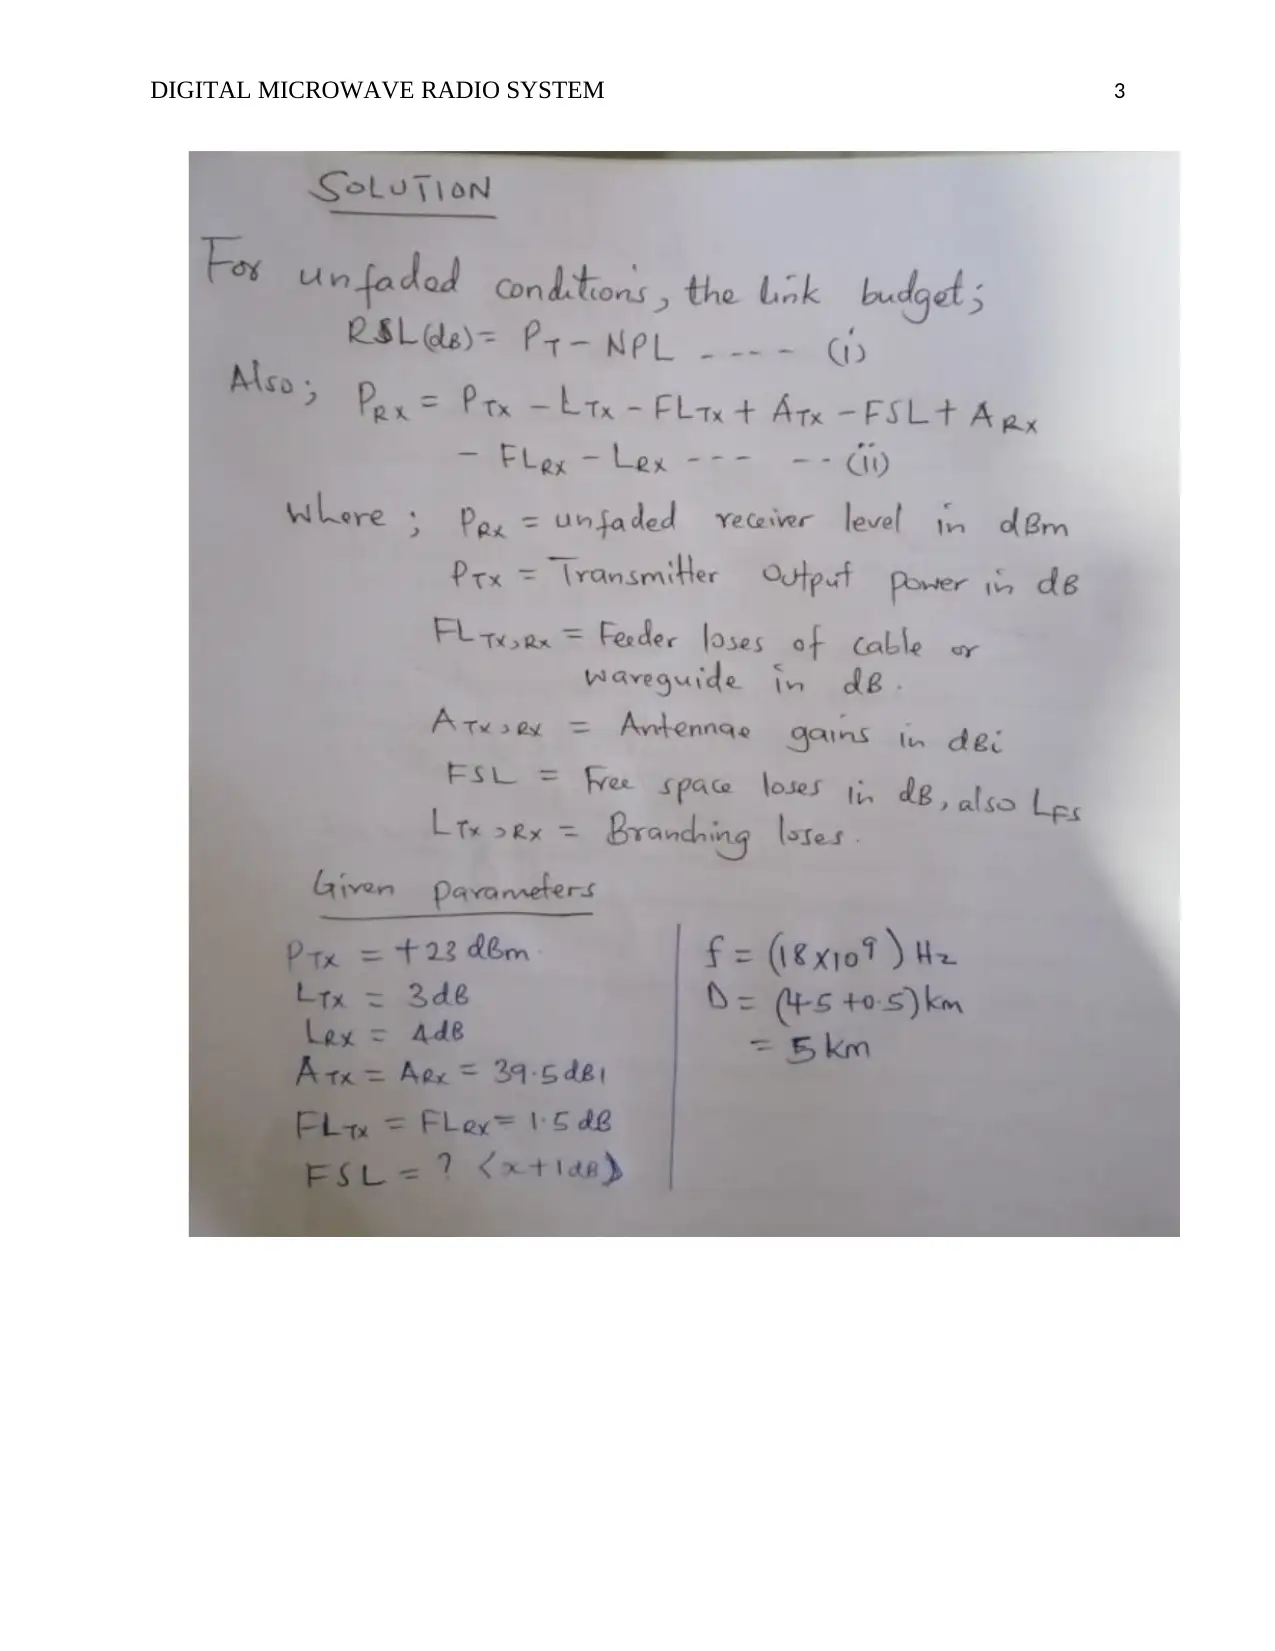 DIGITAL MICROWAVE RADIO SYSTEM 3
SOLUTION
For unfaded conditions, the link budget;
RSL(dB) = PT - NPL ---- (i)
Also; PRX = PTX - LTX - FLTX + ATX - FSL + ARX
- FLRX - LRX --- -- (ii)
Where; PRX = unfaded receiver level in dBm
PTX = Transmitter Output power in dB
FLTX,RX = Feeder loses of cable or
waveguide in dB.
ATX,RX = Antennae gains in dBi
FSL = Free space loses in dB, also LFS
LTX,RX = Branching loses.
Given parameters
PTX = +23 dBm
LTX = 3dB
LRX = 4dB
ATX = ARX = 39.5dBi
FLTX = FLRX = 1.5 dB
FSL = ? (x+1dB)
f = (18x10⁹) Hz
D = (4.5+0.5)km
= 5km